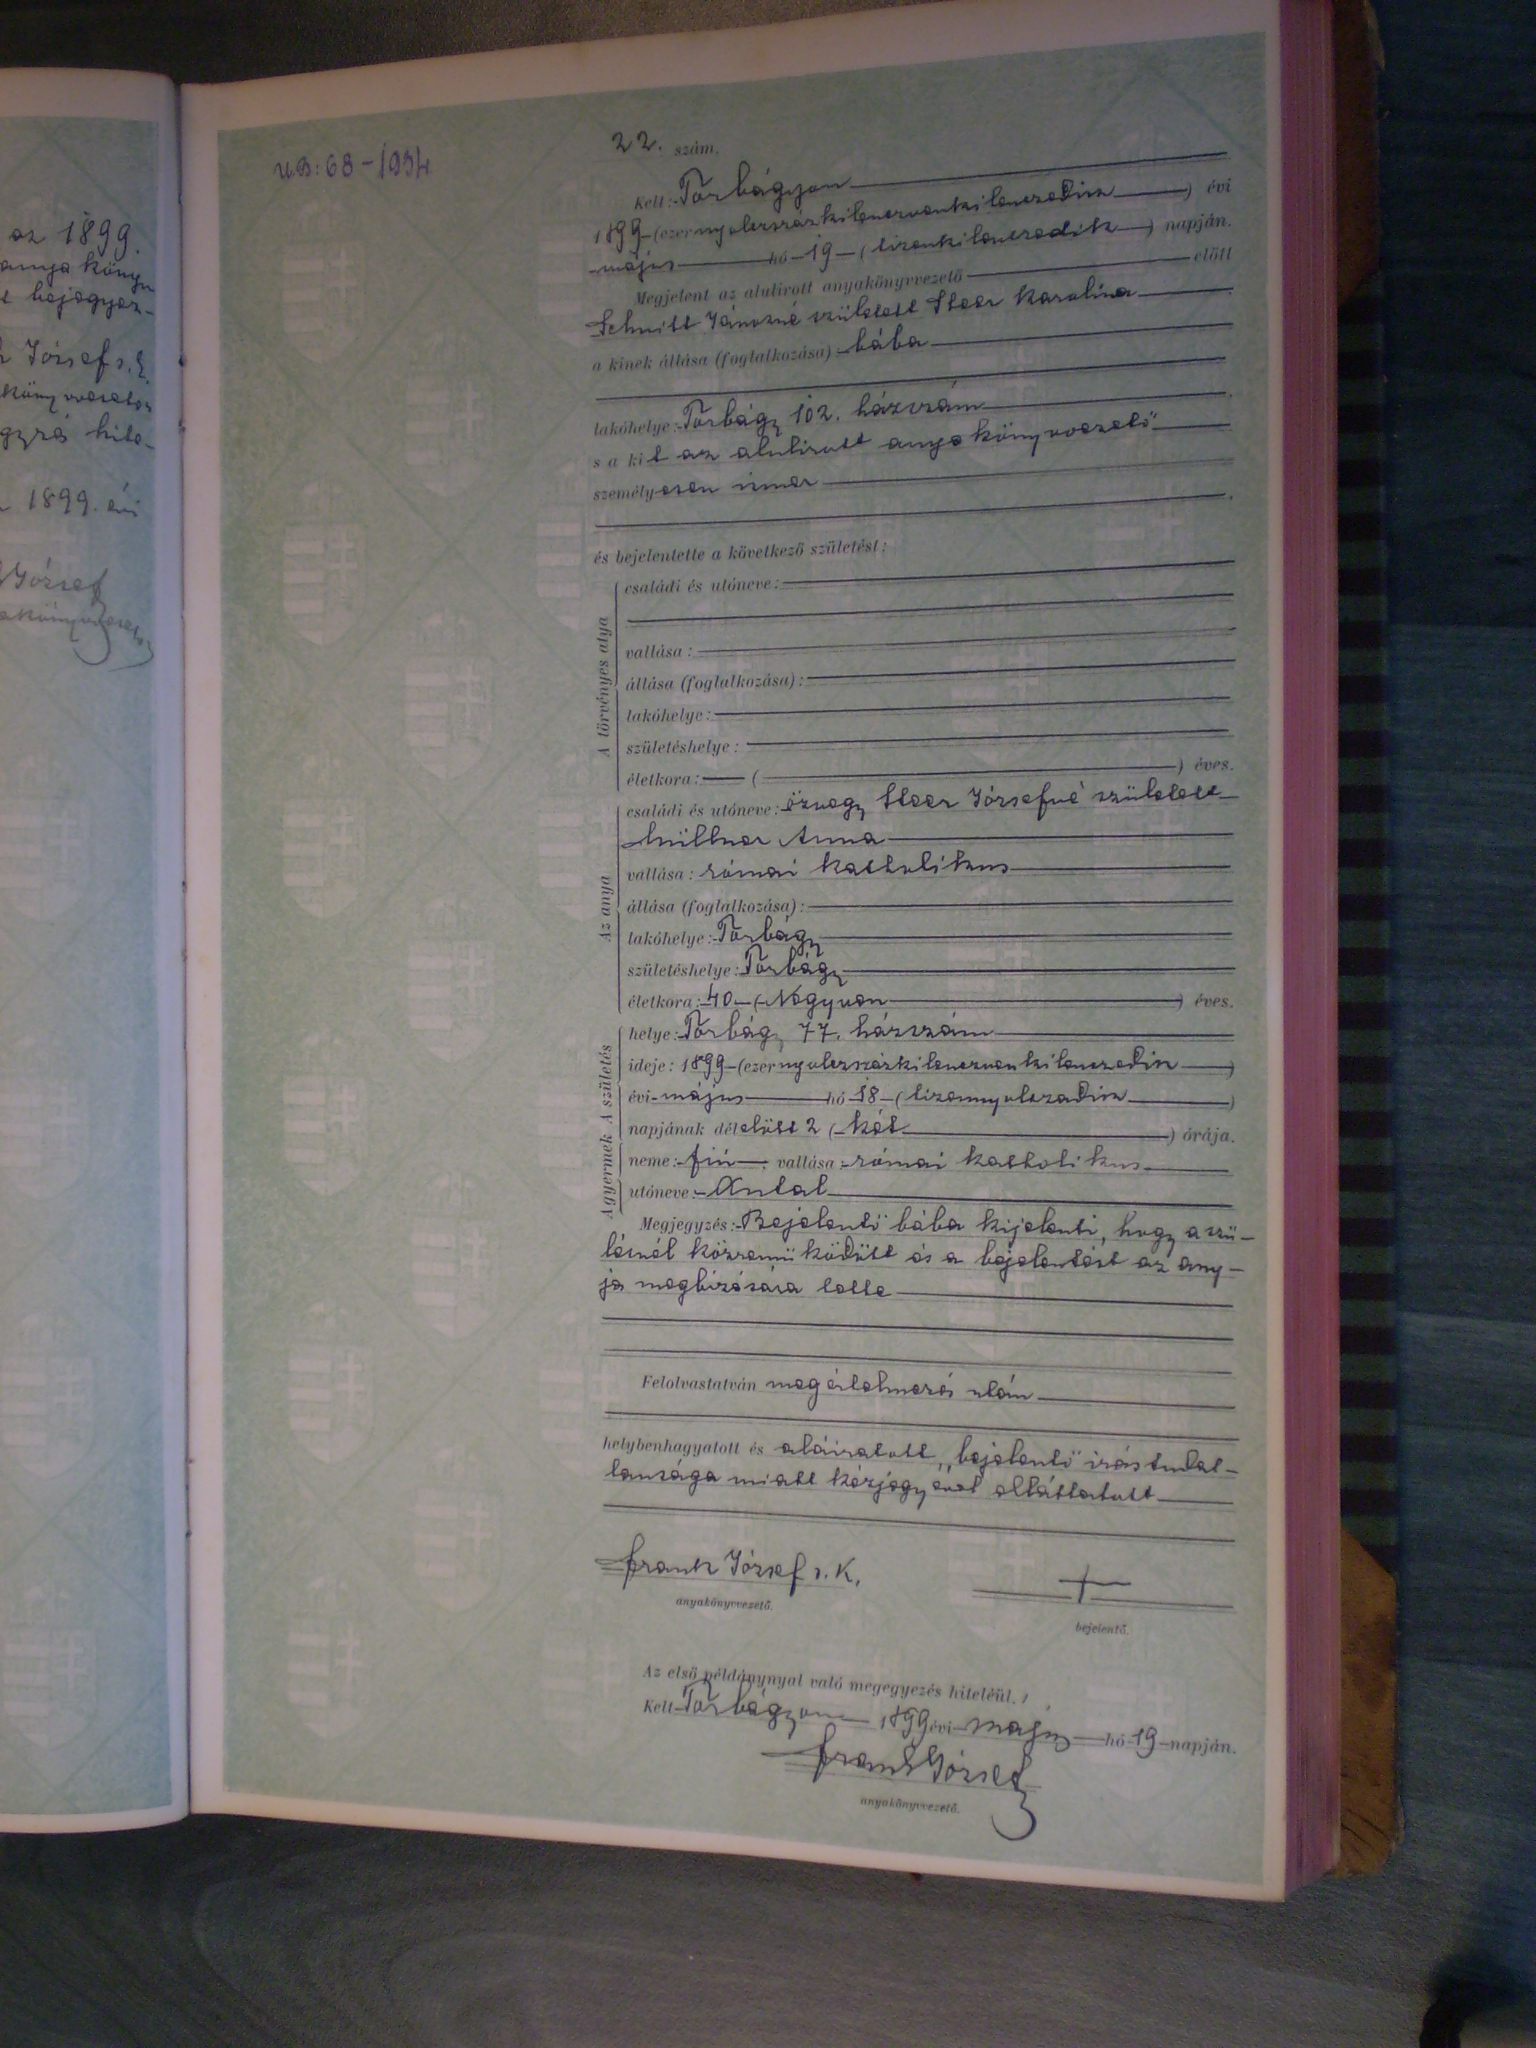 az 1899.
anya köny
t bejegyez-
József s. k.
könyvvezető
gyzés hite-
1899. évi
József
UB: 68-1934
22. szám.
Kelt: Torbágyon
1899 (ezernyolczszázkilenczvenkilenczedik) évi
május hó 19 (tizenkilenczedik) napján.
Megjelent az alulirott anyakönyvvezető előtt
Schmitt Jánosné született Steer Karolina
a kinek állása (foglalkozása): bába
lakóhelye: Torbágy 102. házszám
s a kit az alulirott anyakönyvvezető
személyesen ismer
és bejelentette a következő születést:
A törvényes atya
családi és utóneve:
vallása:
állása (foglalkozása):
lakóhelye:
születéshelye:
életkora: ( ) éves.
Az anya
családi és utóneve: özvegy Steer Józsefné született
Müllner Anna
vallása: római katholikus
állása (foglalkozása):
lakóhelye: Torbágy
születéshelye: Torbágy
életkora: 40 (Negyven) éves.
A születés
helye: Torbágy 77. házszám
ideje: 1899 (ezernyolczszázkilenczvenkilenczedik)
évi május hó 18 (tizennyolczadik)
napjának délelőtt 2 (két) órája.
A gyermek
neme: fiú vallása: római katholikus
utóneve: Antal
Megjegyzés: Bejelentő bába kijelenti, hogy a szü-
lésnél közremüködött és a bejelentést az any-
ja megbizására tette
Felolvastatván megértelmezés után
helybenhagyatott és aláiratott, bejelentő irástudat-
lansága miatt kézjegyével elláttatott
Frank József s. k.
anyakönyvvezető.
+
bejelentő.
Az első példánynyal való megegyezés hiteléül.
Kelt Torbágyon 1899 évi május hó 19 napján.
Frank József
anyakönyvvezető.